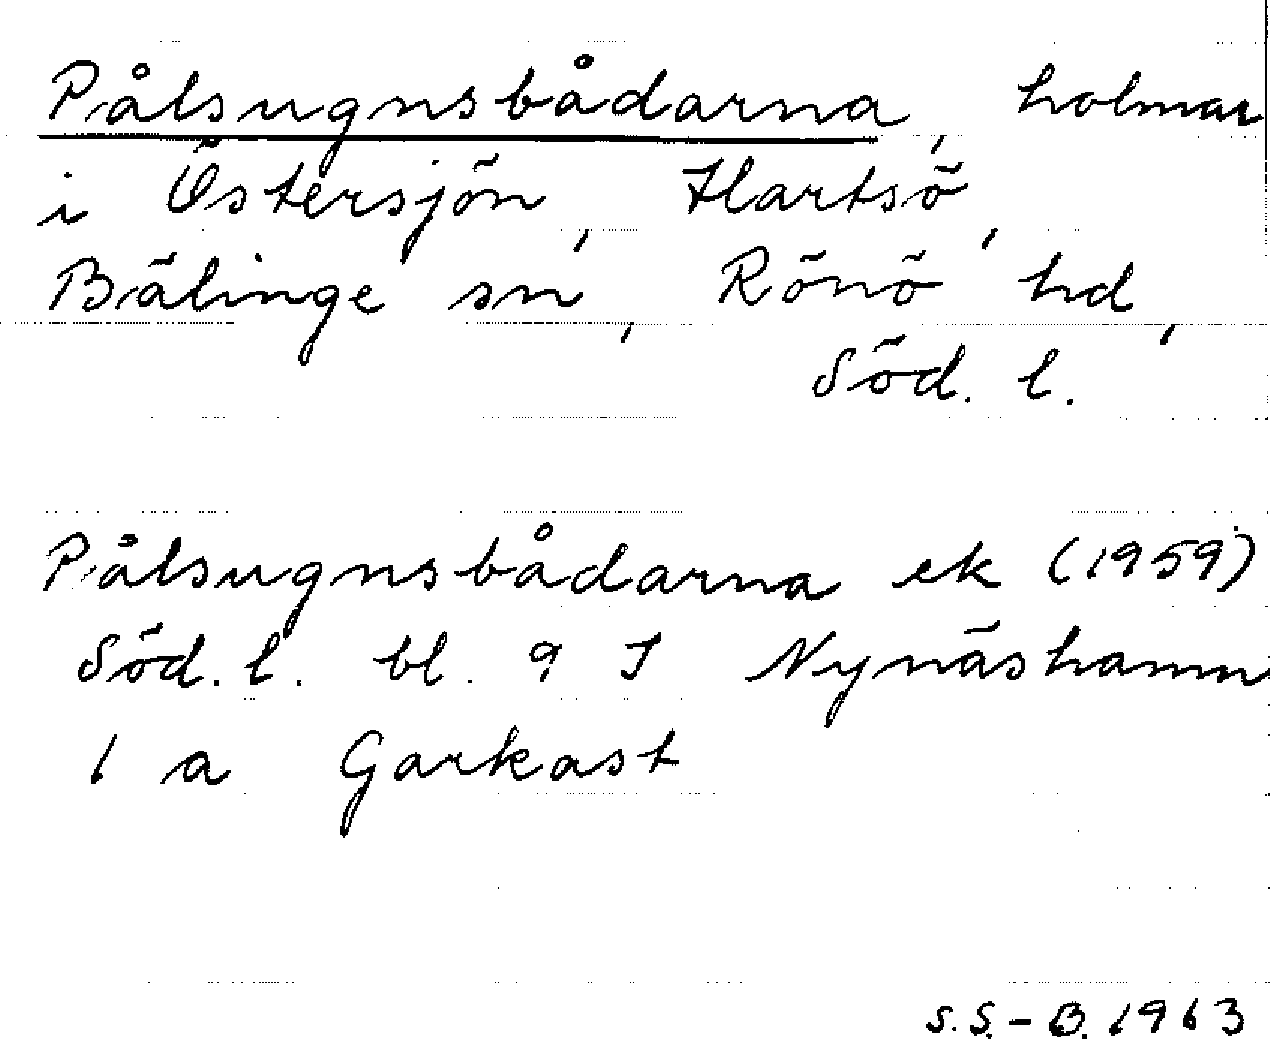 Pålsugnsbådarna, holmar
i Östersjön, Hartsö,
Bälinge sn, Rönö hd,
Söd. l.
Pålsugnsbådarna ek (1959)
Söd. l. bl. 9 I Nynäshamn
1 a Garkast
S.S.-B. 1963